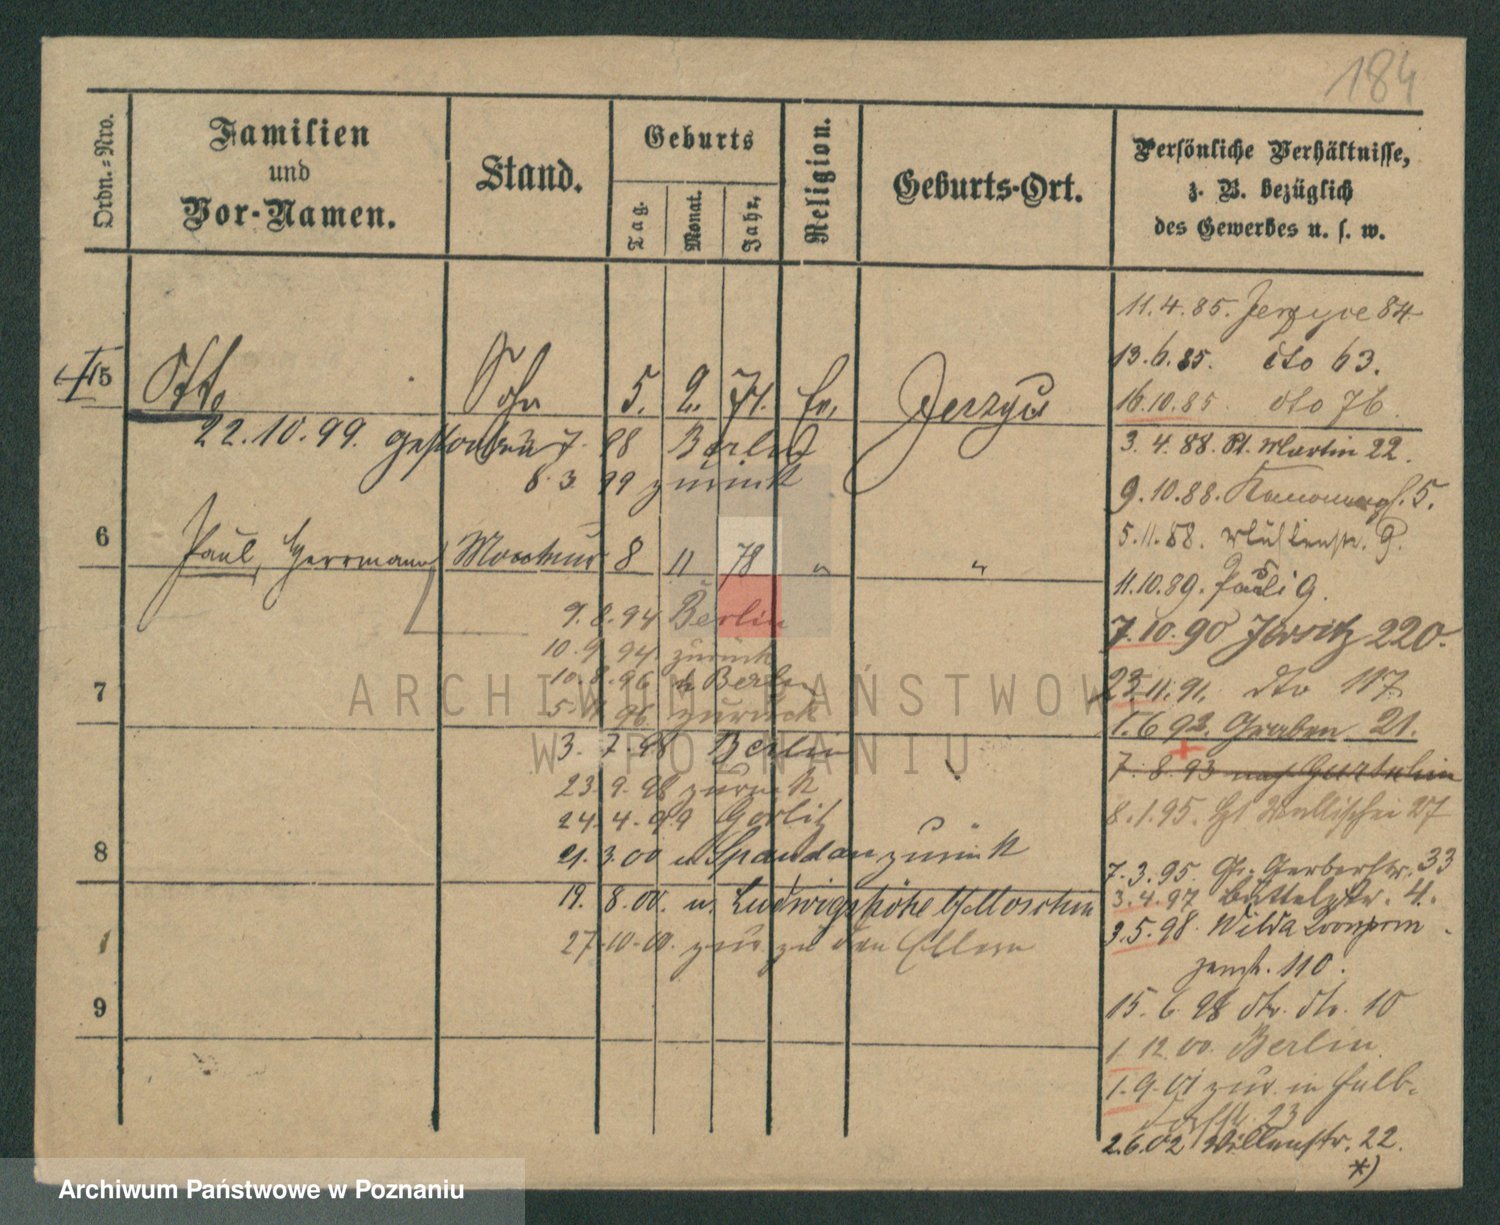 184
Ordn.-Nro.
Familien
und
Vor-Namen.
Stand.
Geburts
Tag.
Monat.
Jahr.
Religion.
Geburts-Ort.
Persönliche Verhältnisse,
z. B. bezüglich
des Gewerbes u. s. w.
5 Otto Sohn 5. 2. 71. Ev. Jerzyce
22.10.99. gestorben 7. 98 Berlin
8. 3. 99 zurück
6 Paul, Herrmann 8 11 78 " "
9. 8. 94 Berlin
10. 9. 94 zurück
7 10. 8. 96 Berlin
96 zurück
3. 7. 98 Berlin
23. 9. 98 zurück
24. 4. 99 Görlitz
8 21. 3. 00 Spandau zurück
19. 8. 00. n. Ludwigshöhe b/Moschin
27.10.00. zur zu den Eltern
9
11. 4. 85. Jerzyce 84
13. 6. 85. dto 63.
16.10.85 dto 76.
3. 4. 88. St. Martin 22.
9. 10. 88. 5.
5. 11. 88. 9.
11.10.89. Pauli 9.
7. 10. 90 Jersitz 220.
23.11.91. dto 117
1. 6 92. Graben 21.
7. 8. 93 nach
8. 1. 95. Wallischei 27
7. 3. 95. Gr. Gerberstr. 33
3. 4. 97 Büttelstr. 4.
3. 5. 98. Wilda Kronprin
zenstr. 110.
15. 6. 98 dto. dto. 10
1. 12. 00. Berlin.
1. 9. 01 zur. in Halb-
dorfstr. 23
2. 6. 02 22.
*)
ARCHIWUM PAŃSTWOWE
W POZNANIU
Archiwum Państwowe w Poznaniu